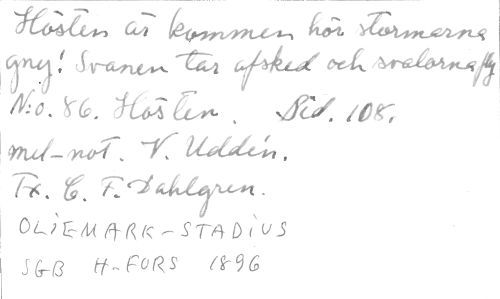 Hösten är kommen hör stormarna
gny! Svanen tar afsked och svalorna fly
N:o. 86. Hösten. Sid. 108.
mel-not. V. Uddén.
Tx. C. F. Dahlgren.
OLIEMARK-STADIUS
SGB H-FORS 1896